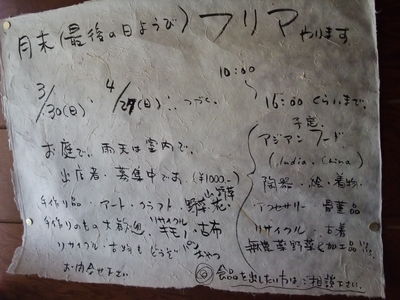 月末(最後の日ようび)フリマやります
10:00
3/30(日)、4/27(日)…つづく。
16:00くらいまで。
お庭で。雨天は室内で。
出店者・募集中です。(¥1000-)
山野草
手作り品・アート・クラフト・野菜・花・
手作りのもの大歓迎。リサイクルキモノ・古布
リサイクル・古物もどうぞ
パン
お問合せ下さい
予定
アジアンフード
(India・China)
陶器・絵・着物
アクセサリー 骨董品
リサイクル・古着
無農薬野菜と加工品
◎食品を出したい方はご相談下さい。